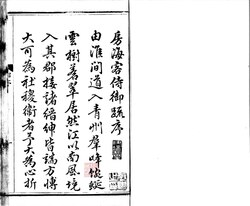 房海客侍御疏序
由淮間道入青州群峰縱
雲樹蓊翠居然江以南風境
入其郡接諸縉紳皆瑰方博
大可為社稷衛者予大為心折